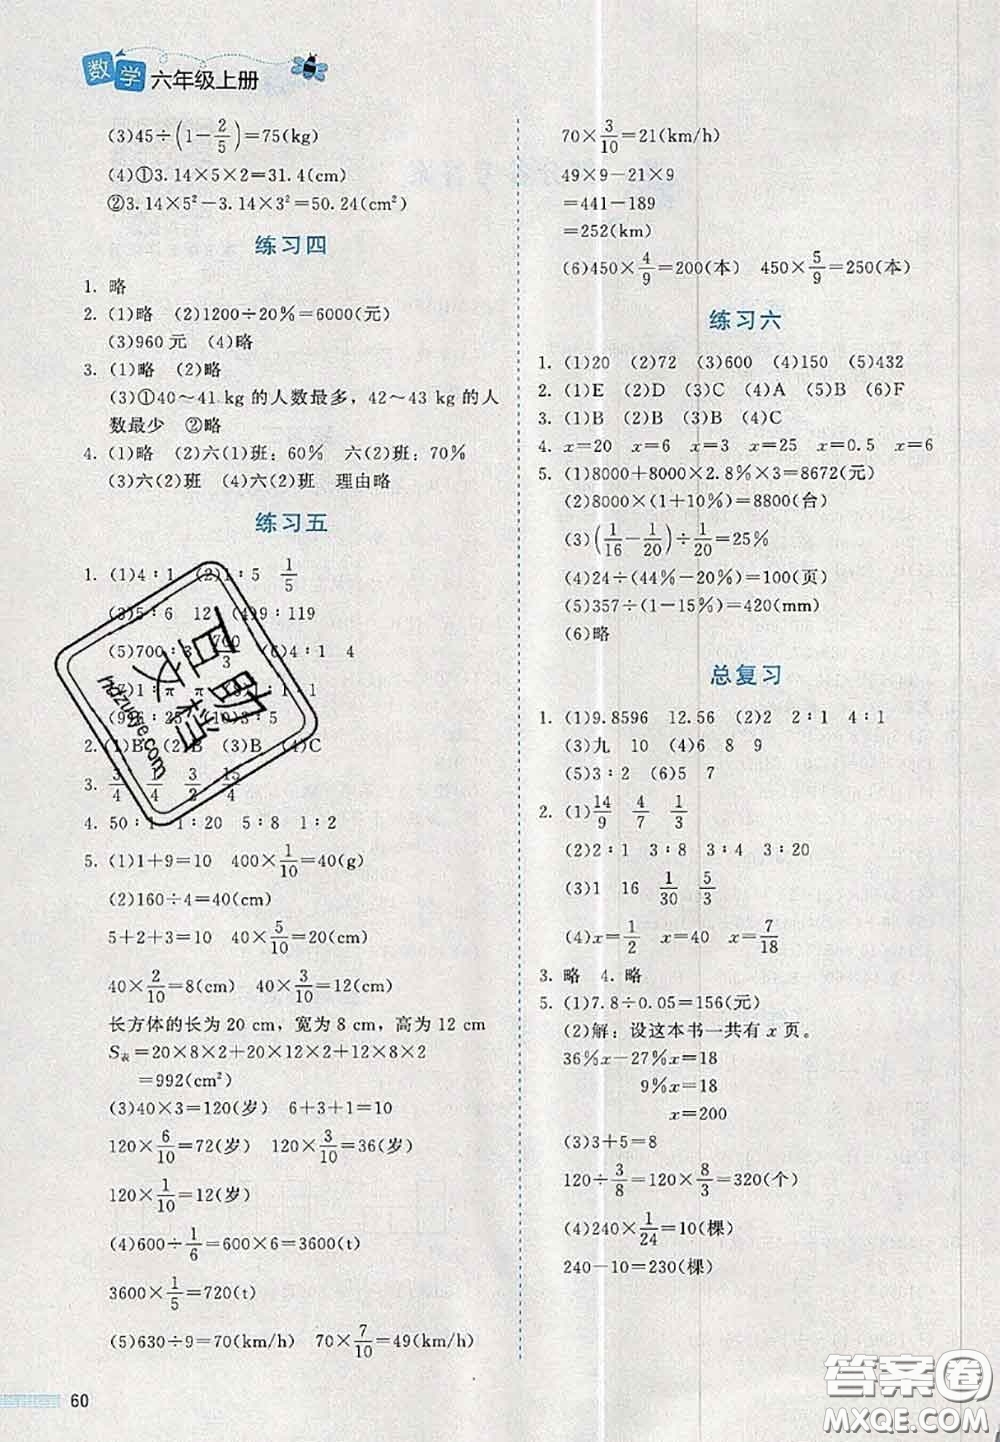 数学 六年级上册
(3)45÷(1−2/5)=75(kg)
(4)①3.14×5×2=31.4(cm)
②3.14×5²−3.14×3²=50.24(cm²)
练习四
1. 略
2. (1)略 (2)1200÷20%=6000(元)
(3)960元 (4)略
3. (1)略 (2)略
(3)①40～41 kg 的人数最多，42～43 kg 的人
数最少 ②略
4. (1)略 (2)六(1)班：60% 六(2)班：70%
(3)六(2)班 (4)六(2)班 理由略
练习五
1. (1)4∶1 (2)1∶5 1/5
(3)5∶6 12 (4)9∶119
(5)700∶3 700/3 (6)4∶1 4
(7)1∶π π
(9)96∶25 (10)3∶5
2. (1)B (2)B (3)B (4)C
3. 3/4 1/4 3/2 15/4
4. 50∶1 1∶20 5∶8 1∶2
5. (1)1+9=10 400×1/10=40(g)
(2)160÷4=40(cm)
5+2+3=10 40×5/10=20(cm)
40×2/10=8(cm) 40×3/10=12(cm)
长方体的长为 20 cm，宽为 8 cm，高为 12 cm
S表=20×8×2+20×12×2+12×8×2
=992(cm²)
(3)40×3=120(岁) 6+3+1=10
120×6/10=72(岁) 120×3/10=36(岁)
120×1/10=12(岁)
(4)600÷1/6=600×6=3600(t)
3600×1/5=720(t)
(5)630÷9=70(km/h) 70×7/10=49(km/h)
60
70×3/10=21(km/h)
49×9−21×9
=441−189
=252(km)
(6)450×4/9=200(本) 450×5/9=250(本)
练习六
1. (1)20 (2)72 (3)600 (4)150 (5)432
2. (1)E (2)D (3)C (4)A (5)B (6)F
3. (1)B (2)B (3)B (4)C
4. x=20 x=6 x=3 x=25 x=0.5 x=6
5. (1)8000+8000×2.8%×3=8672(元)
(2)8000×(1+10%)=8800(台)
(3)(1/16−1/20)÷1/20=25%
(4)24÷(44%−20%)=100(页)
(5)357÷(1−15%)=420(mm)
(6)略
总复习
1. (1)9.8596 12.56 (2)2 2∶1 4∶1
(3)九 10 (4)6 8 9
(5)3∶2 (6)5 7
2. (1)14/9 4/7 1/3
(2)2∶1 3∶8 3∶4 3∶20
(3)1 16 1/30 5/3
(4)x=1/2 x=40 x=7/18
3. 略 4. 略
5. (1)7.8÷0.05=156(元)
(2)解：设这本书一共有 x 页。
36%x−27%x=18
9%x=18
x=200
(3)3+5=8
120÷3/8=120×8/3=320(个)
(4)240×1/24=10(棵)
240−10=230(棵)
互助文档
hdzuoye.com
答案圈
MXQE.COM